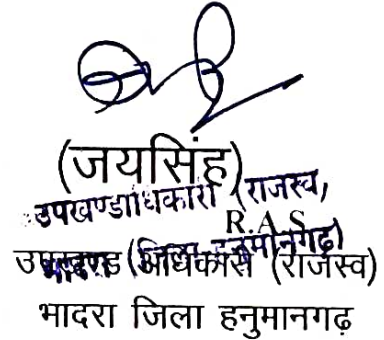 (जयसिंह)
उपखण्डाधिकारी (राजस्व)
R.A.S
भादरा (जिला हनुमानगढ़)
उपखण्ड अधिकारी (राजस्व)
भादरा जिला हनुमानगढ़